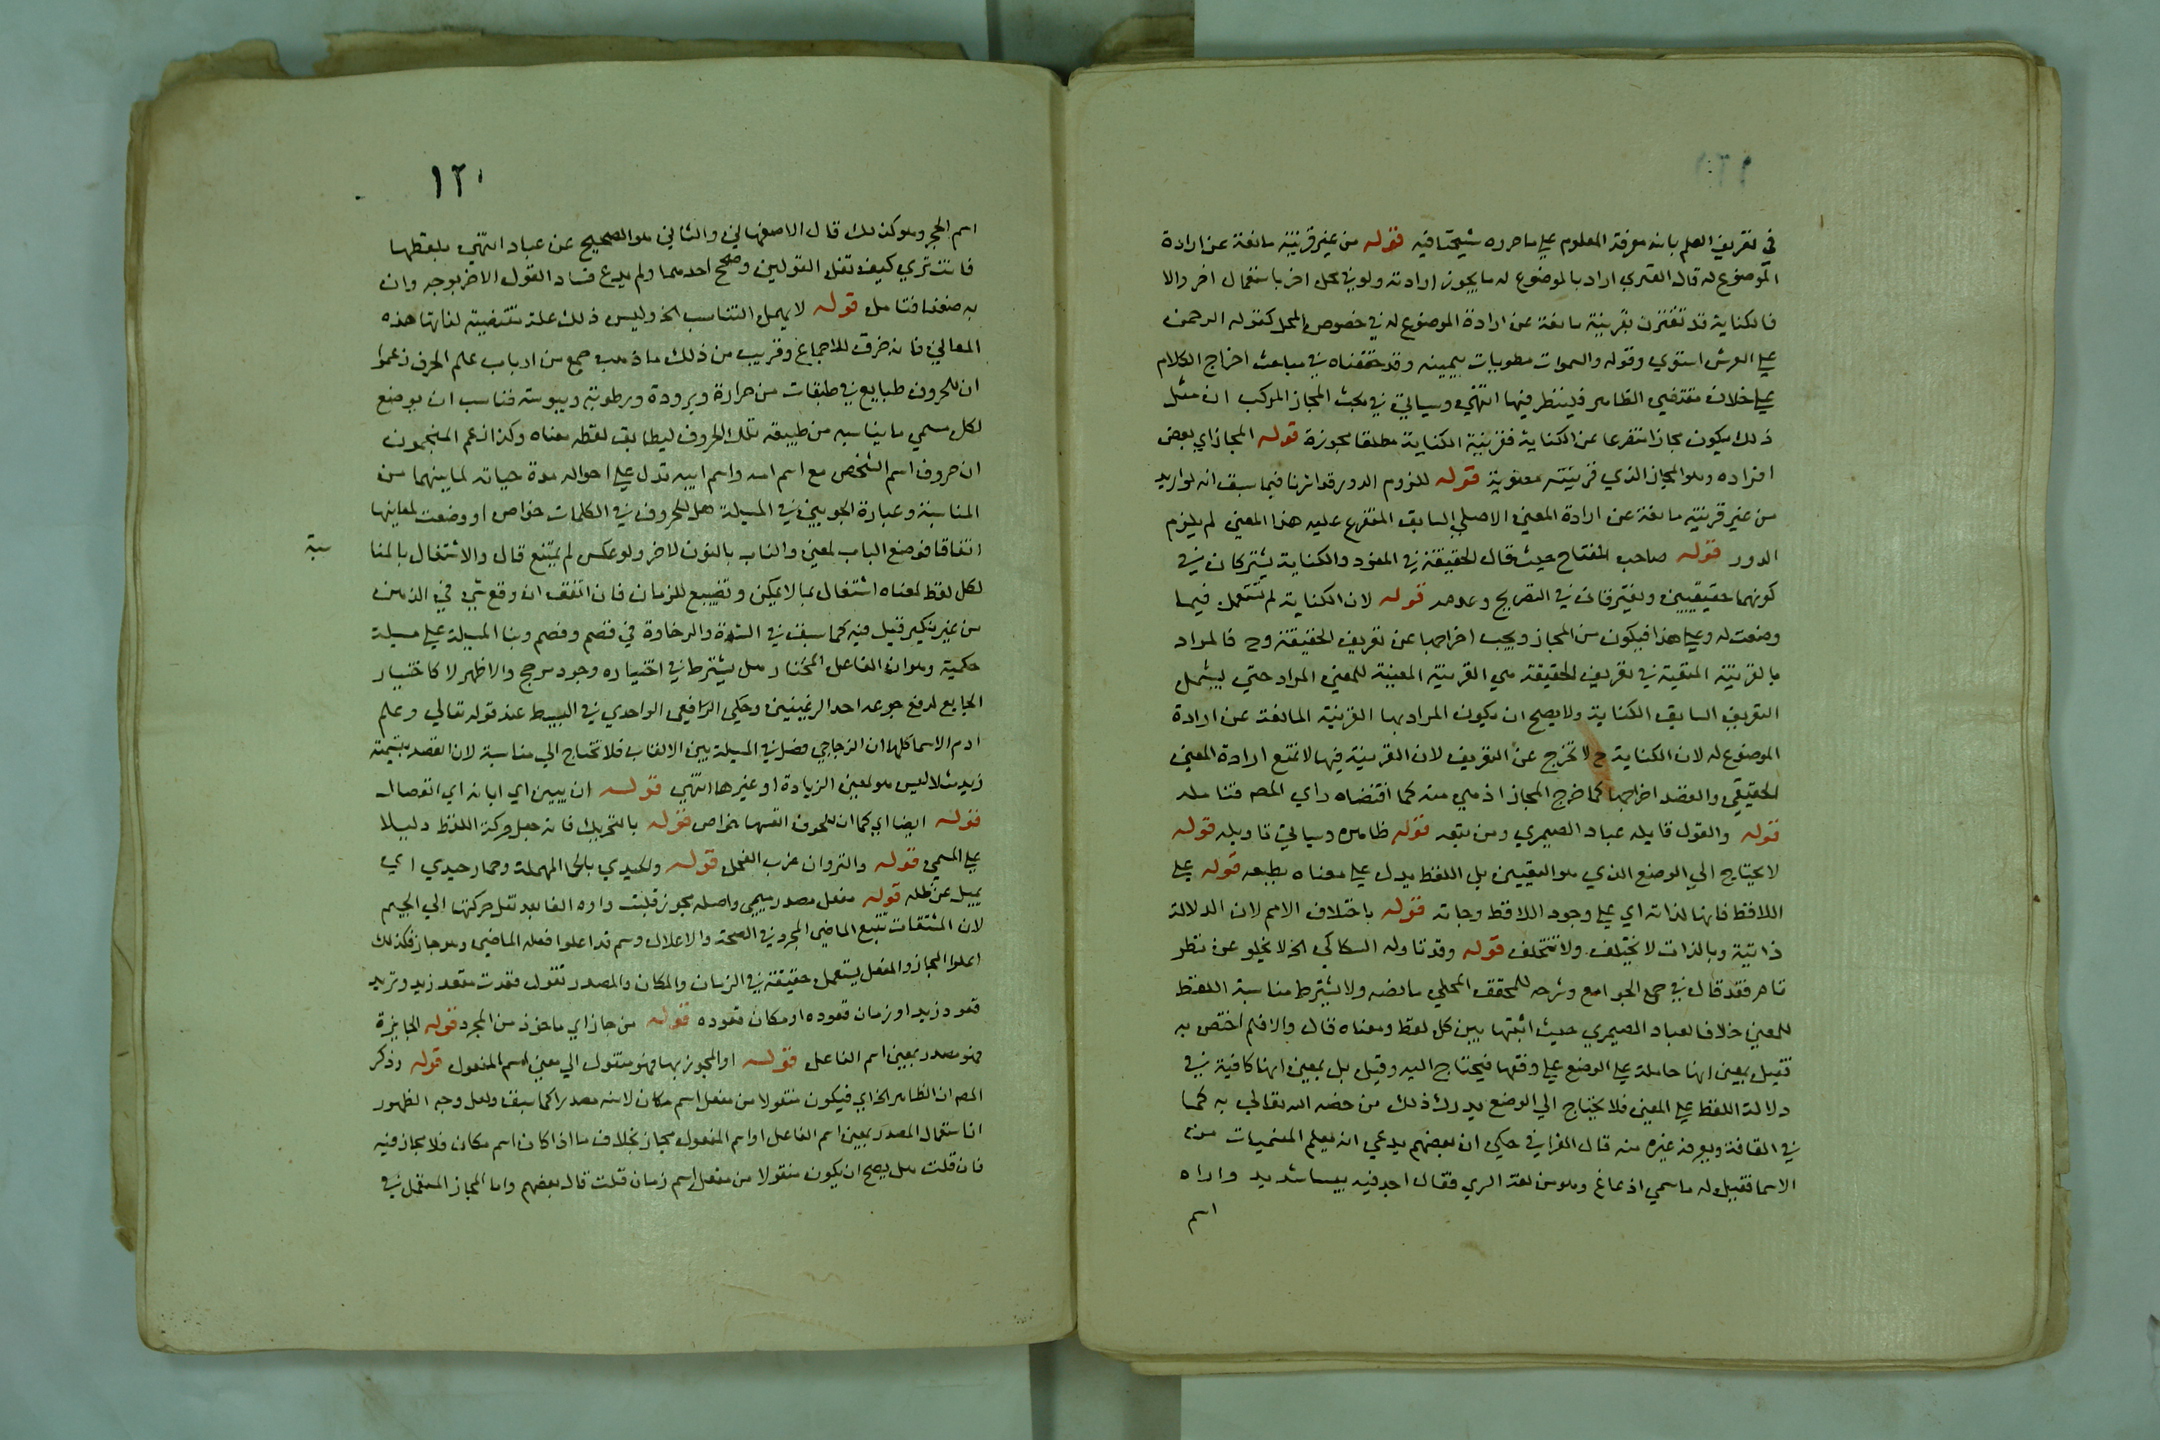 في تعريف العلم بانه معرفة المعلوم علي ما حرره شيخنا فيه قوله من غير قرينة مانعة عن ارادة
الموضوع له قال الفنري اراد بالموضوع له ما يجوز ارادته ولو في محل اخر باستعمال اخر والا
فالكناية قد تقترن بقرينة مانعة عن ارادة الموضوع له في خصوص المحل كقوله الرحمن
علي العرش استوي وقوله والسموات مطويات بيمينه وقد حققناه في مباحث اخراج الكلام
علي خلاف مقتضي الظاهر فلينظر فيها انتهي وسياتي في بحث المجاز المركب ان مثل
ذلك يكون مجازا متفرعا عن الكناية فقرينة الكناية مطلقا مجوزة قوله المجاز اي بعض
افراده وهو المجاز الذي قرينته معنوية قوله للزوم الدور قد اشرنا فيما سبق انه لو اريد
من غير قرينة مانعة عن ارادة المعني الاصلي السابق المتفرع عليه هذا المعني لم يلزم
الدور قوله صاحب المفتاح حيث قال الحقيقة في المفرد والكناية يشتركان في
كونهما حقيقيين ويفترقان في التصريح وعدمه قوله لان الكناية لم تستعمل فيما
وضعت له وعلي هذا فيكون من المجاز ويجب اخراجها عن تعريف الحقيقة وح فالمراد
بالقرينة المنفية في تعريف الحقيقة هي القرينة المعينة للمعني المراد حتي يشمل
التعريف السابق الكناية ولا يصح ان يكون المراد بها القرينة المانعة عن ارادة
الموضوع له لان الكناية ح لا تخرج عن التعريف لان القرينة فيها لا تمنع ارادة المعني
الحقيقي والقصد اخراجها كما خرج المجاز اذ هي منه كما اقتضاه راي المصه فتامله
قوله والقول قايله عباد الصيمري ومن تبعه قوله ظاهره وسياتي تاويله قوله
لا يحتاج الي الوضع الذي هو التعيين بل اللفظ يدل علي معناه بطبعه قوله علي
اللافظ فانها لذاته اي علي وجود اللافظ وحياته قوله باختلاف الامم لان الدلالة
ذاتية وبالذات لا يختلف ولا تتخلف قوله وقد تاوله السكاكي الخ لا يخلو عن نظر
تاحر فقد قال في جمع الجوامع وشرحه للمحقق المحلي ما نصه ولا يشترط مناسبة اللفظ
للمعني خلافا لعباد الصيمري حيث اثبتها بين كل لفظ ومعناه قال والا فلم اختص به
فقيل بمعني انها حاملة علي الوضع علي وفقها فيحتاج اليه وقيل بل بمعني انها كافية في
دلالة اللفظ علي المعني فلا يحتاج الي الوضع يدرك ذلك من خصه الله تعالي به كما
في القافة ويعرفه غيره منه قال القرافي حكي ان بعضهم يدعي انه يعلم المسميات من
الاسما فقيل له ما سمي اذغاغ وهو من لغة البربر فقال اجد فيه يبسا شديدا واراه
اسم
١٢٠
اسم الحجر وهو كذلك قال الاصفهاني والثاني هو الصحيح عن عباد انتهي بلفظها
فانت تري كيف نقل القولين وصحح احدهما ولم يدع فساد القول الاخر بوجه وان
به ضعفا فتامل قوله لا يهمل التناسب الخ وليس ذلك علة مقتضية لذاتها هذه
المعاني فانه خرق للاجماع وقريب من ذلك ما ذهب جمع من ارباب علم الحرف زعموا
ان للحروف طبايع في طبقات من حرارة وبرودة ورطوبة ويبوسة فناسب ان يوضع
لكل مسمي ما يناسبه من طبيعة تلك الحروف ليطابق لفظه معناه وكذا زعم المنجمون
ان حروف اسم الشخص مع اسم امه واسم ابيه تدل علي احواله مدة حياته لما بينهما من
المناسبة وعبارة الجويني في المسيلة هل للحروف في الكلمات خواص او وضعت لمعانيها
اتفاقا فوضع الباب لمعني والناب بالنون لاخر ولو عكس لم يمتنع قال والاشتغال بالمنا
سبة
لكل لفظ لمعناه اشتغال بما لا يمكن وتضييع للزمان فان اتفق ان وقع شي في الذهن
من غير تكير قيل فيه كما سبق في الشدة والرخاوة في قصم وفصم وبنا المسيلة علي مسيلة
حكمية وهو ان الفاعل المختار هل يشترط في اختياره وجود مرجح والاظهر لا كاختيار
الجايع لدفع جوعه احد الرغيفين وحكي الرافعي الواحدي في البسيط عند قوله تعالي وعلم
ادم الاسما كلها ان الزجاجي فضل في المسيلة بين الالقاب فلا تحتاج الي مناسبة لان القصد بتسمية
زيد مثلا ليس هو لمعني الزيادة او غيرها انتهي قوله ان يبين اي ابانه اي انفصال
قوله ايضا اي كما ان للحروف انفسها خواص قوله بالتحريك فانه جعل حركة اللفظ دليلا
علي المسمي قوله والنزوان عزب الفحل قوله والحيدي بالحا المهملة وحمار حيدي اي
يميل عن ظله قوله مفعل مصدر ميمي واصله مجوز قلبت واوه الفا بعد نقل حركتها الي الجيم
لان المشتقات تتبع الماضي المجرد في الصحة والاعلال وهم قد اعلوا فعله الماضي وهو جاز فكذلك
اعلوا المجاز والمفعل يستعمل حقيقة في الزمان والمكان والمصدر تقول قعدت مقعد زيد وتريد
قعود زيد او زمان قعوده او مكان قعوده قوله من جاز اي ماخوذ من المجرد قوله الجايزة
فهو مصدر بمعني اسم الفاعل قوله او المجوز بها فهو منقول الي معني اسم المفعول قوله وذكر
المصه ان الظاهر الخ اي فيكون منقولا من مفعل اسم مكان لا منه مصدرا كما سبق ولعل وجه الظهور
ان استعمال المصدر بمعني اسم الفاعل او اسم المفعول مجاز بخلاف ما اذا كان اسم مكان فلا مجاز فيه
فان قلت هل يصح ان يكون منقولا من مفعل اسم زمان قلت قال بعضهم واما المجاز المستعمل في